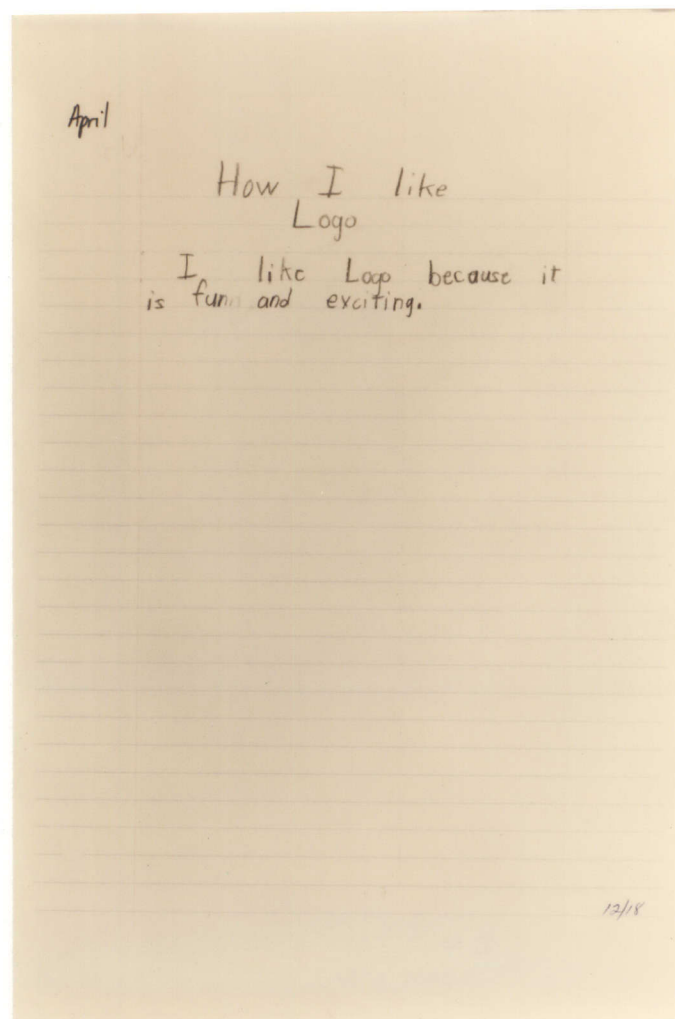 April
How I like
Logo
I like Logo because it
is fun and exciting.
12/18